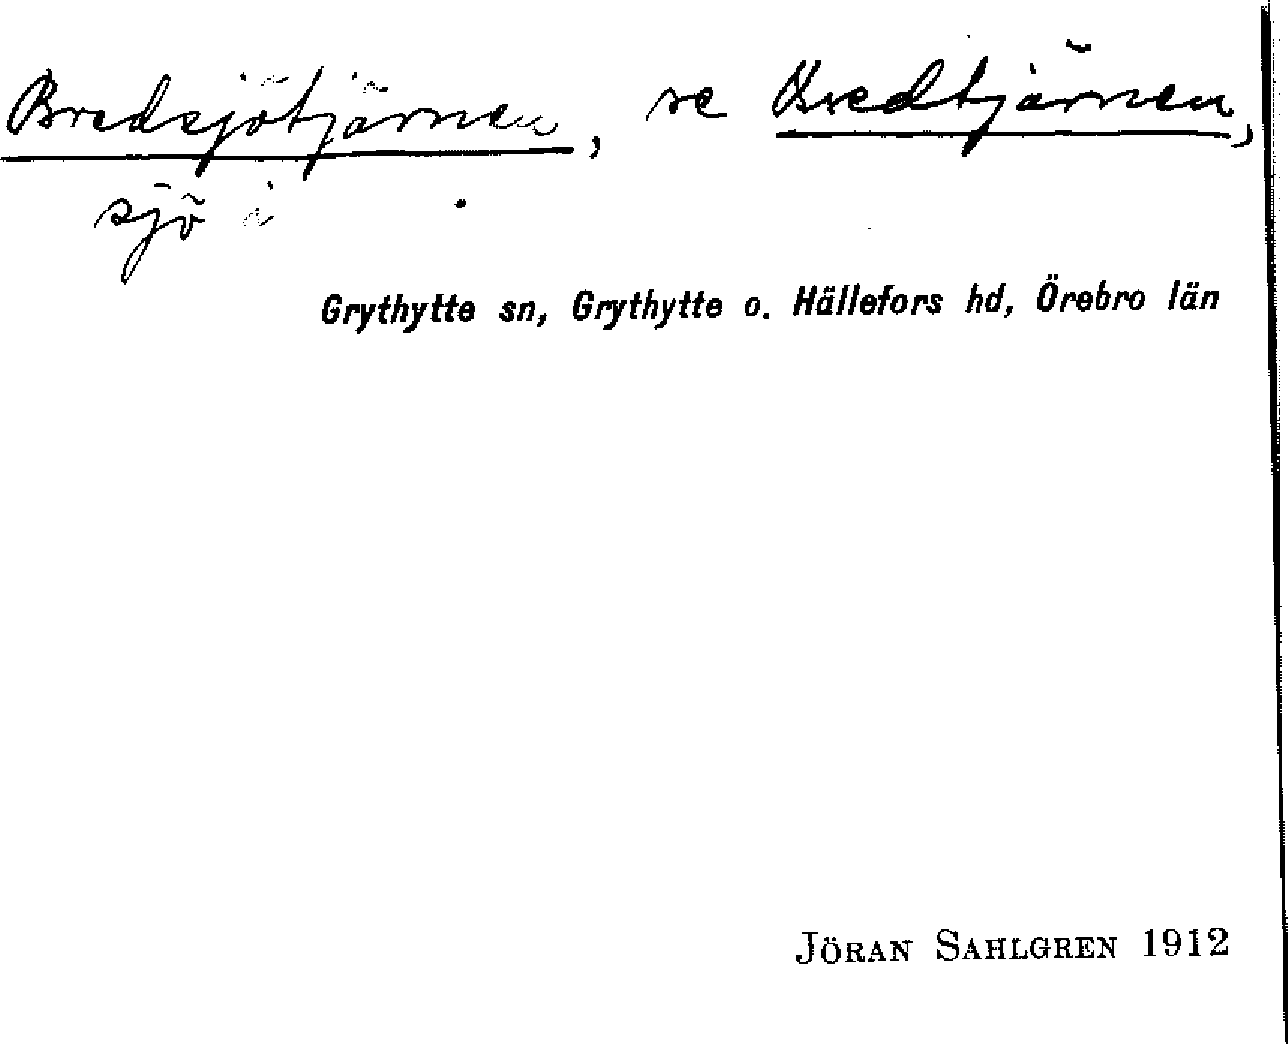 Bredsjötjärnen, se Bredtjärnen,
sjö i
Grythytte sn, Grythytte o. Hällefors hd, Örebro län
JÖRAN SAHLGREN 1912